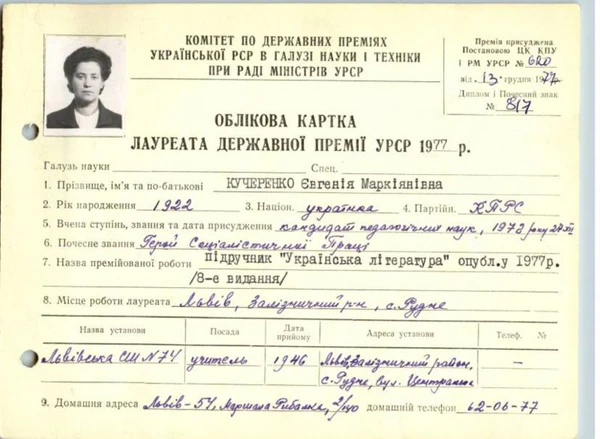 КОМІТЕТ ПО ДЕРЖАВНИХ ПРЕМІЯХ
УКРАЇНСЬКОЇ РСР В ГАЛУЗІ НАУКИ І ТЕХНІКИ
ПРИ РАДІ МІНІСТРІВ УРСР
Премія присуджена
Постановою ЦК КПУ
і РМ УРСР № 620
від 13 грудня 1977
Диплом і Почесний знак
№ 817
ОБЛІКОВА КАРТКА
ЛАУРЕАТА ДЕРЖАВНОЇ ПРЕМІЇ УРСР 1977 р.
Галузь науки Спец.
1. Прізвище, ім'я та по-батькові КУЧЕРЕНКО Євгенія Маркіянівна
2. Рік народження 1922 3. Націон. українка 4. Партійн. КПРС
5. Вчена ступінь, звання та дата присудження кандидат педагогічних наук, 1972 року 24 XII
6. Почесне звання Герой Соціалістичної Праці
7. Назва премійованої роботи Підручник "Українська література" опубл.у 1977р.
/8-е видання/
8. Місце роботи лауреата Львів, Залізничний р-н, с. Рудне
Назва установи Посада Дата прийому Адреса установи Телеф. №
Львівська СШ N 74 учитель 1946 Львів, Залізничний район, —
с. Рудне, вул. Центральна
9. Домашня адреса Львів-54, Маршала Рибалка, домашній телефон 62-06-77